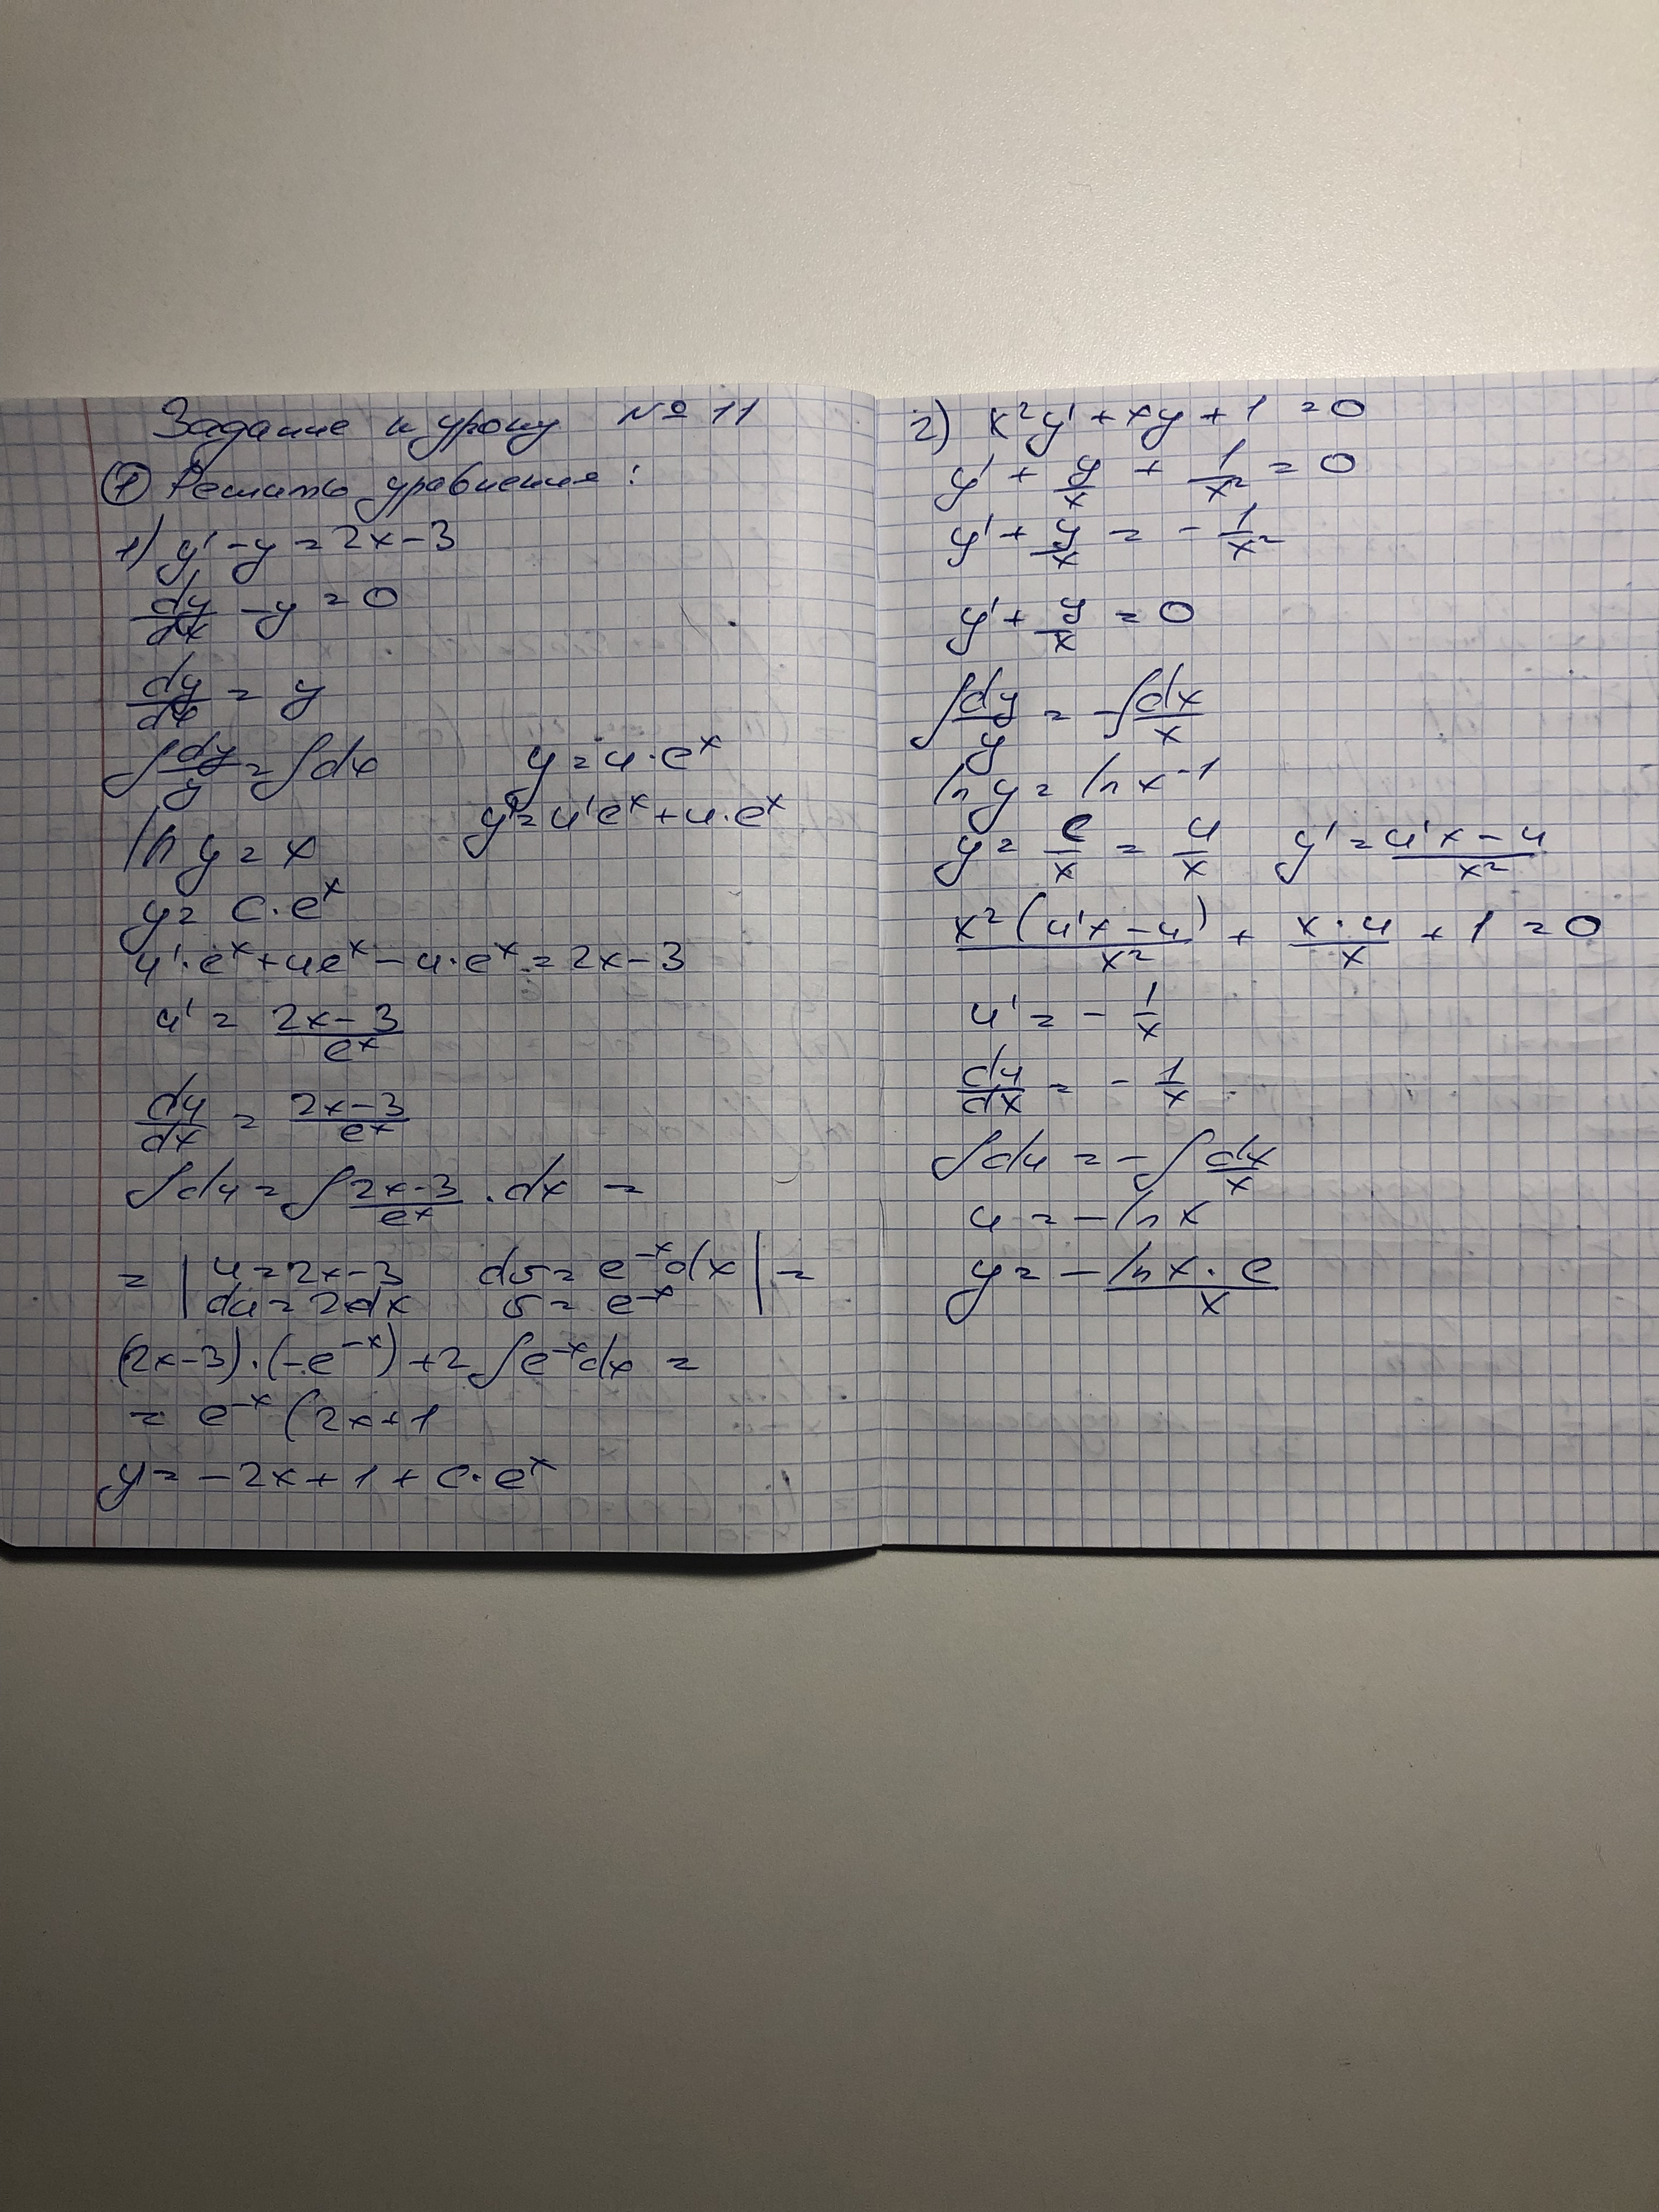 Задание к уроку № 11
① Решить уравнения:
1) y' - y = 2x - 3
dy/dx - y = 0
dy/dx = y
∫ dy/y = ∫ dx
y = u · e^x
ln y = x
y' = u'e^x + u · e^x
y = C · e^x
u' · e^x + ue^x - u · e^x = 2x - 3
u' = (2x - 3)/e^x
du/dx = (2x - 3)/e^x
∫ du = ∫ (2x - 3)/e^x · dx =
= | u = 2x - 3 dv = e^-x dx | =
du = 2dx v = e^-x
(2x - 3) · (-e^-x) + 2 ∫ e^-x dx =
= e^-x (2x + 1
y = -2x + 1 + C · e^x
2) x²y' + xy + 1 = 0
y' + y/x + 1/x² = 0
y' + y/x = - 1/x²
y' + y/x = 0
∫ dy/y = - ∫ dx/x
ln y = ln x^-1
y = C/x = u/x y' = (u'x - u)/x²
x²(u'x - u)/x² + x · u/x + 1 = 0
u' = - 1/x
du/dx = - 1/x
∫ du = - ∫ dx/x
u = - ln x
y = - ln x · C/x